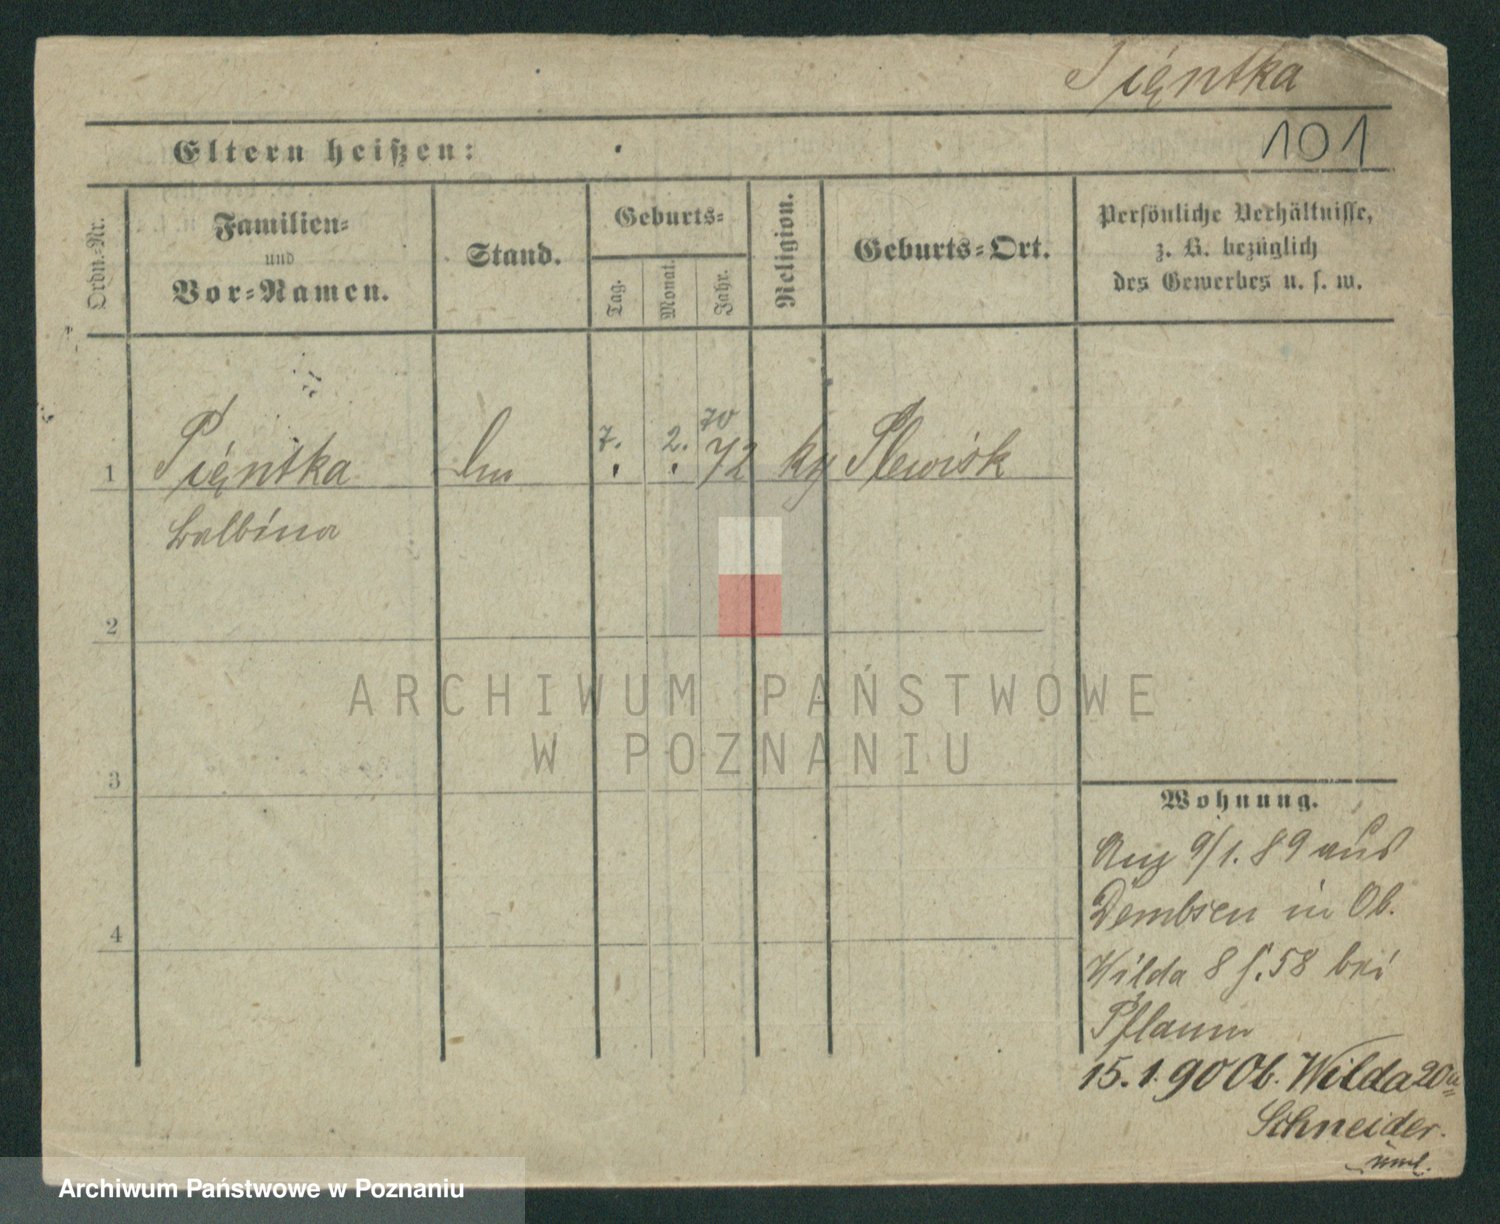 Pięntka
101
Eltern heißen:
Ordn.-Nr.
Familien-
und
Vor-Namen.
Stand.
Geburts-
Tag.
Monat.
Jahr.
Religion.
Geburts-Ort.
Persönliche Verhältnisse,
z. B. bezüglich
des Gewerbes u. s. w.
70
1 Pięntka 7. 2. 72 Plewisk
Balbina
2
3
4
Wohnung.
Anz 9/1. 89 aus
Dembsen in Ob.
Wilda 8 f. 58 bei
Pflaum
15. 1. 90 Ob. Wilda 20a
Schneider.
ARCHIWUM PAŃSTWOWE
W POZNANIU
Archiwum Państwowe w Poznaniu